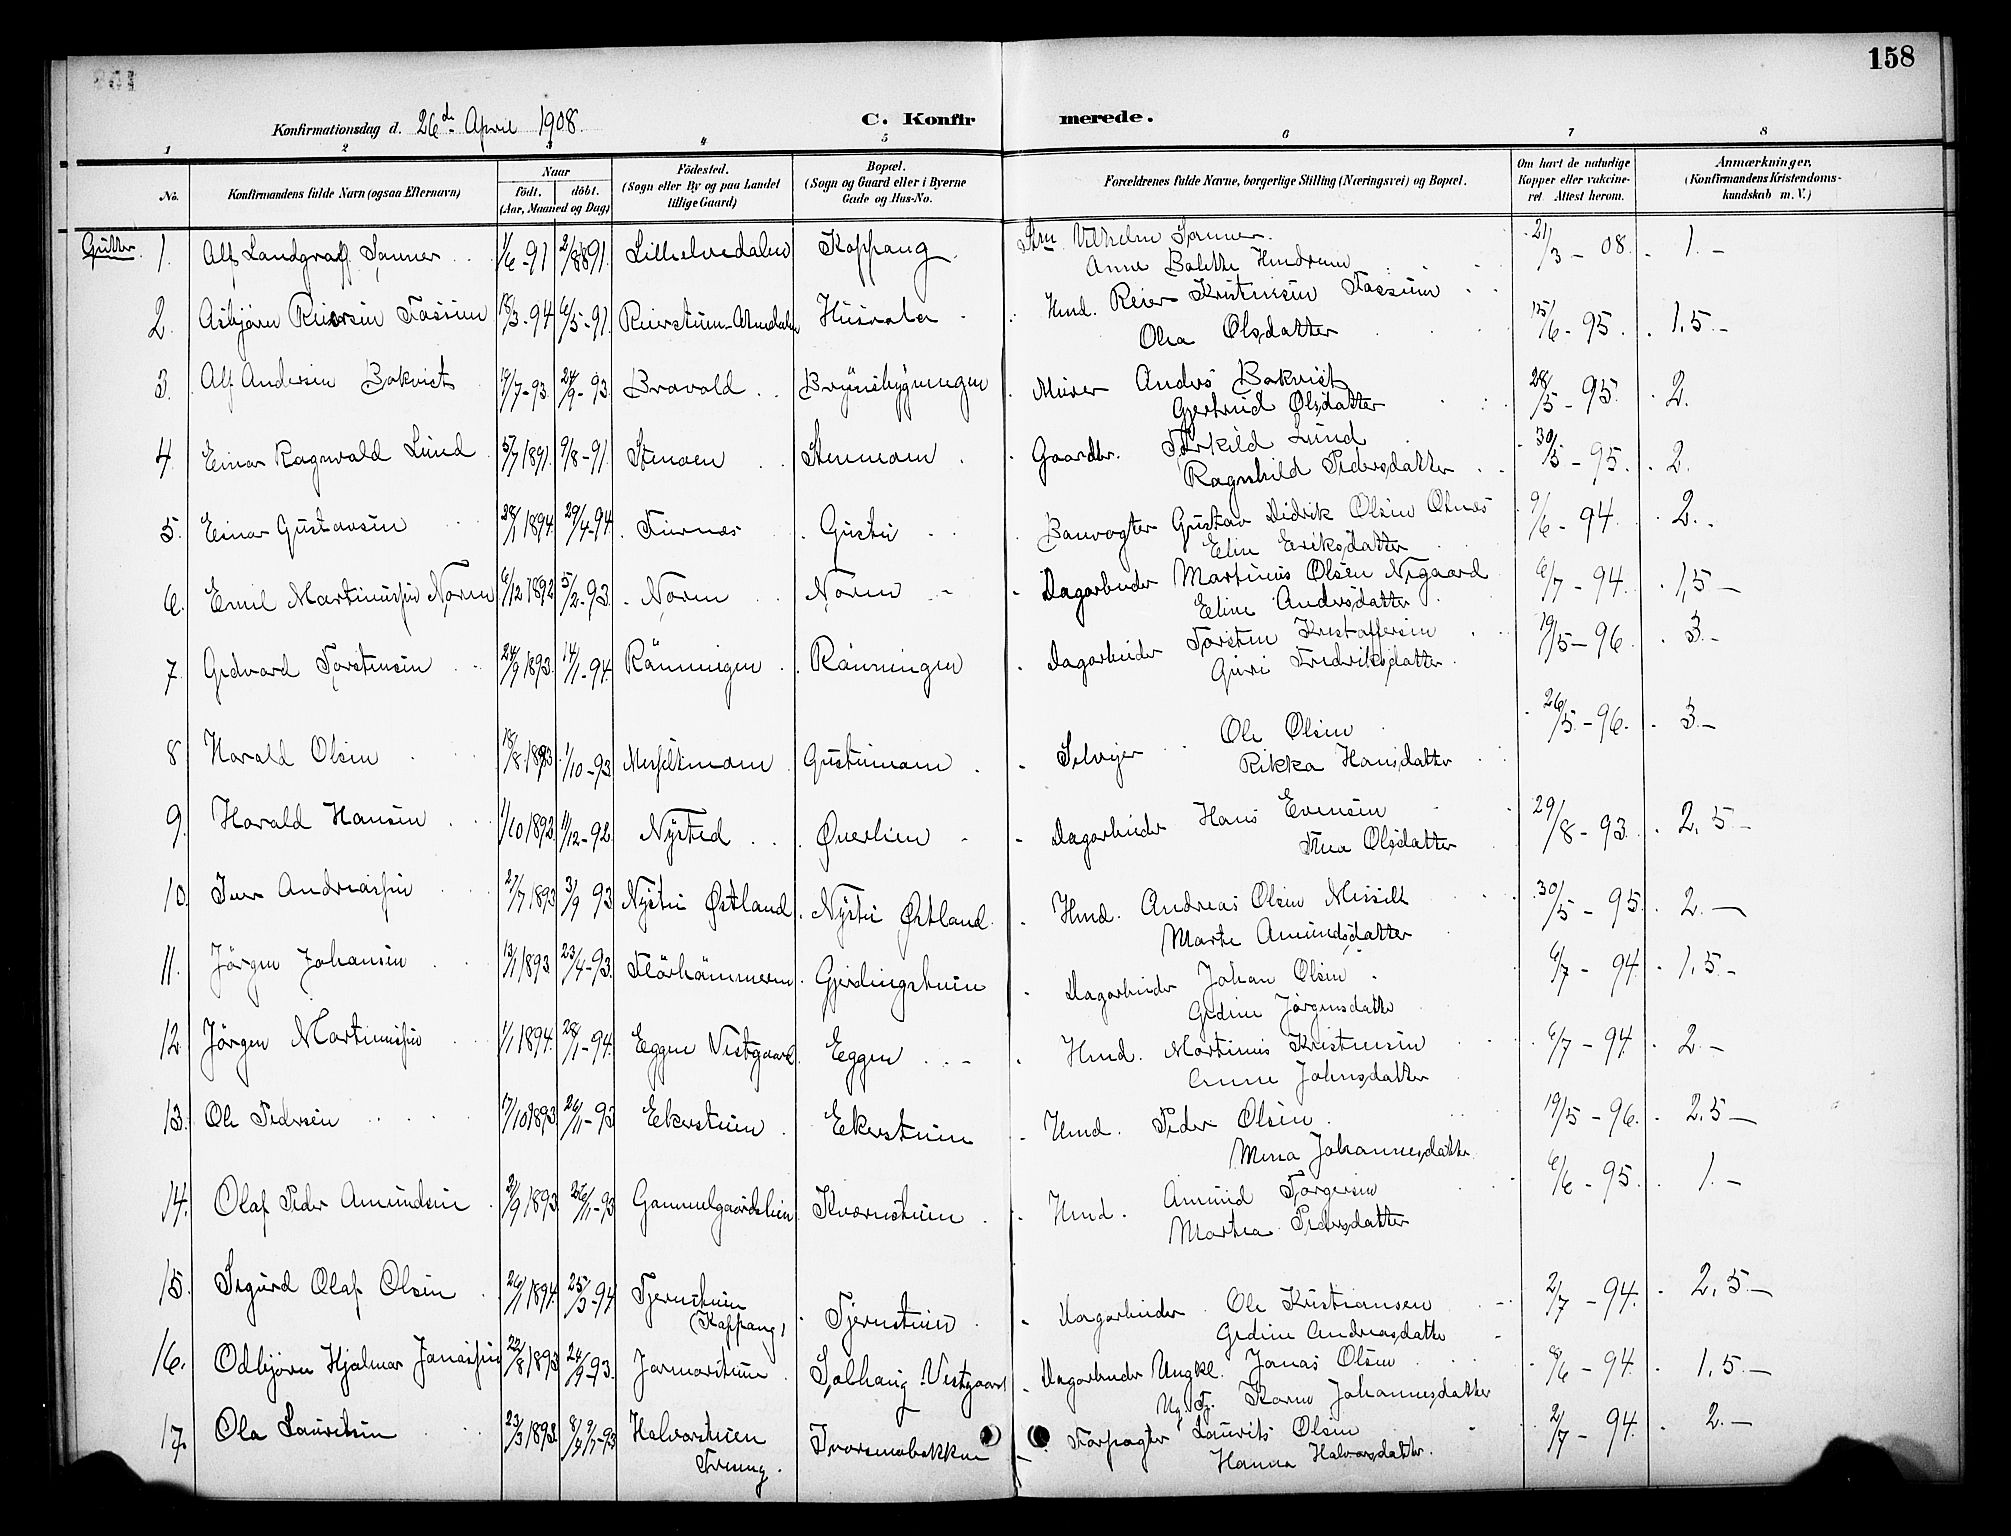 158
Konfirmationsdag d. 26de April 1908.
C. Konfirmerede.
1 2 3 4 5 6 7 8
No. Konfirmandens fulde Navn (ogsaa Efternavn) Naar födt. döbt. (Aar, Maaned og Dag) Födested. (Sogn eller By og paa Landet tillige Gaard) Bopæl. (Sogn og Gaard eller i Byerne Gade og Hus-No. Forældrenes fulde Navne, borgerlige Stilling (Næringsvei) og Bopæl. Om havt de naturlige Kopper eller vaccineret Attest herom. Anmærkninger, (Konfirmandens Kristendomskundskab m. V.)
Gutter.
1. Alf Landgraff Sanner 1/6-91 2/8 891 Lilleelvedalen Koppang Vilhelm Sanner 21/3-08. 1.-
Anne Bolette Hindrum
2. Asbjørn Reiersen Fossum 18/3-94 6/5-91 Reierstuen Husvoler Hmd. Reier Kristensen Fossum 15/6-95. 1.5.-
Olea Olsdatter
3. Alf Andersen Bakvist 19/7-93. 24/9-93. Bravold Brynsbygningen Murer Anders Bakvist 28/5-95. 2.
Gjertrud Olsdatter
4. Einar Ragnvald Lund 5/7 1891. 9/8-91. Stenmoen Gaardbr. Torkild Lund 30/5-95. 2.
Ragnhild Pedersdatter
5. Einar Gustavsen 28/1 1894 29/4-94 Furnes Gustu Banvogter Gustav Didrik Olsen Olnes 9/6-94. 2.-
Elin Eriksdatter
6. Emil Martinussen Noren 6/12 1892 5/2-93. Noren Noren Dagarbeider Martinus Olsen Nygaard 6/7-94. 1,5-
Eline Andersdatter
7. Gedvard Torstensen 24/9 1893. 14/1-94. Rønningen Rønningen Dagarbeider Torsten Kristoffersen 19/5-96. 3.-
Guri Fredriksdatter
8 Harald Olsen 18/8. 1893 1/10-93 Messeltmoen Gustumoen Selveier Ole Olsen 26/5-96. 3.-
Rikka Hansdatter
9. Harald Hansen 1/10 1892. 11/12-92. Nysted Øverlien Dagarbeider Hans Evensen 29/8-93. 2,5-
Thea Olsdatter
10. Iver Andreassen 27/7 1893 3/9 93 Nystu Østland Nystu Østland Hmd. Andreas Olsen Messelt 30/5-95. 2.-
Marte Amundsdatter
11. Jørgen Johansen 13/1 1893. 23/4-93. Gjerdingstuen Dagarbeider Johan Olsen 6/7-94. 1,5.-
Gedine Jørgensdatter
12. Jørgen Martinussen 1/1 1894. 28/1-94. Eggen Vestgaard Eggen Hmd. Martinus Kristensen 6/7-94. 2.-
Anne Johnsdatter
13. Ole Pedersen 17/10 1893. 26/11-93 Ekerstuen Ekerstuen Hmd. Peder Olsen 19/5-96. 2.5-
Mena Johannesdatter
14. Olaf Peder Amundsen 21/9 1893 26/11-93 Gammelgaardslien Kværnstuen Hmd. Amund Torgersen 6/6-95. 1.-
Martea Pedersdatter
15. Sigurd Olaf Olsen 26/1 1894. 25/3-94 Tjernstuen (Koppang) Tjernstuen Dagarbeider Ole Kristiansen 2/7-94. 2,5-
Gedine Andreasdatter
16. Odbjørn Hjalmar Jonassen 22/8 1893 24/9-93. Solhaug Vestgaard Dagarbeider Ungkl. Jonas Olsen 8/6-94. 1,5.-
Karen Johannesdatter
17. Ola Lauritsen 23/3 1893. Halvorstuen Forpagter Laurits Olsen 2/7-94. 2.-
Hanna Halvorsdatter.